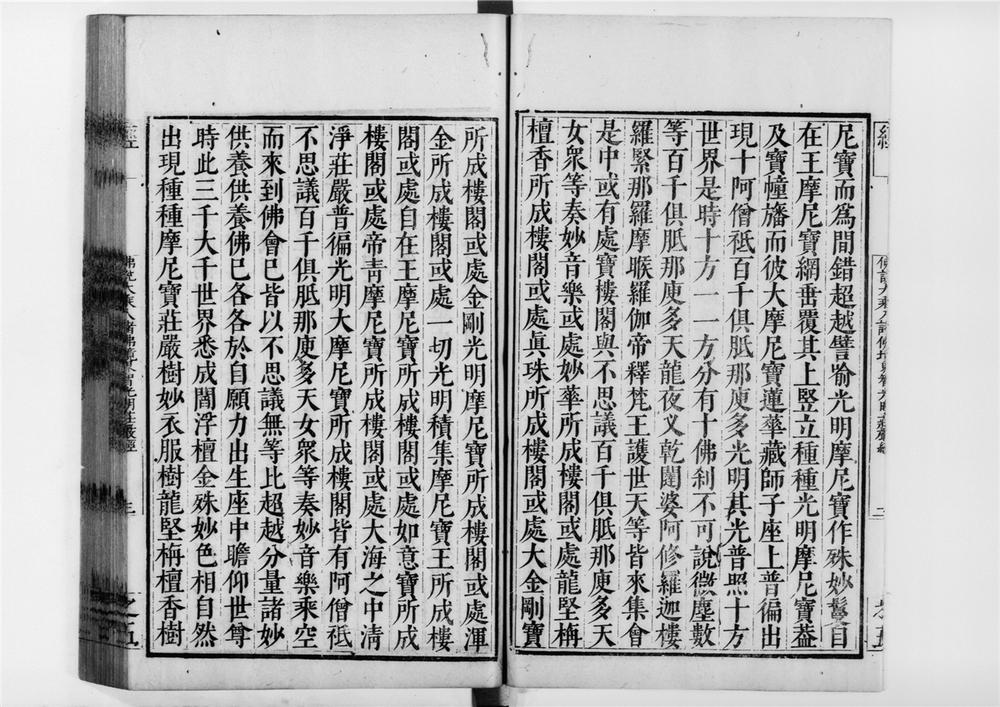 尼寶而爲間錯超越譬喻光明摩尼寶作殊妙鬘自
在王摩尼寶網垂覆其上豎立種種光明摩尼寶葢
及寶幢旛而彼大摩尼寶蓮華藏師子座上普徧出
現十阿僧祗百千俱胝那庾多光明其光普照十方
世界是時十方一一方分有十佛刹不可說微塵數
等百千俱胝那庾多天龍夜叉乾闥婆阿修羅迦樓
羅緊那羅摩睺羅伽帝釋梵王護世天等皆來集會
是中或有處寶樓閣與不思議百千俱胝那庾多天
女衆等奏妙音樂或處妙華所成樓閣或處龍堅栴
檀香所成樓閣或處眞珠所成樓閣或處大金剛寶
所成樓閣或處金剛光明摩尼寶所成樓閣或處渾
金所成樓閣或處一切光明積集摩尼寶王所成樓
閣或處自在王摩尼寶所成樓閣或處如意寶所成
樓閣或處帝靑摩尼寶所成樓閣或處大海之中清
淨莊嚴普徧光明大摩尼寶所成樓閣皆有阿僧祗
不思議百千俱胝那庾多天女衆等奏妙音樂乘空
而來到佛會已皆以不思議無等比超越分量諸妙
供養供養佛已各各於自願力出生座中瞻仰世尊
時此三千大千世界悉成閻浮檀金殊妙色相自然
出現種種摩尼寶莊嚴樹妙衣服樹龍堅栴檀香樹